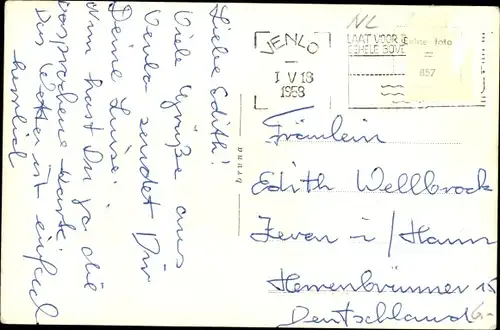 Liebe Edith!
Viele Grüße aus
Venlo sendet Dir
Deine Luise.
Nun hast Du ja die
versprochene Karte.
Das Wetter ist einfach
herrlich
bruna
NL
VENLO
1 V 18
1958
LAAT VOOR
GEHELE BOVE
857
Fräulein
Edith Wellbrock
Zeven i/Hann
Herrenbrümmer 15
Deutschland
6.-